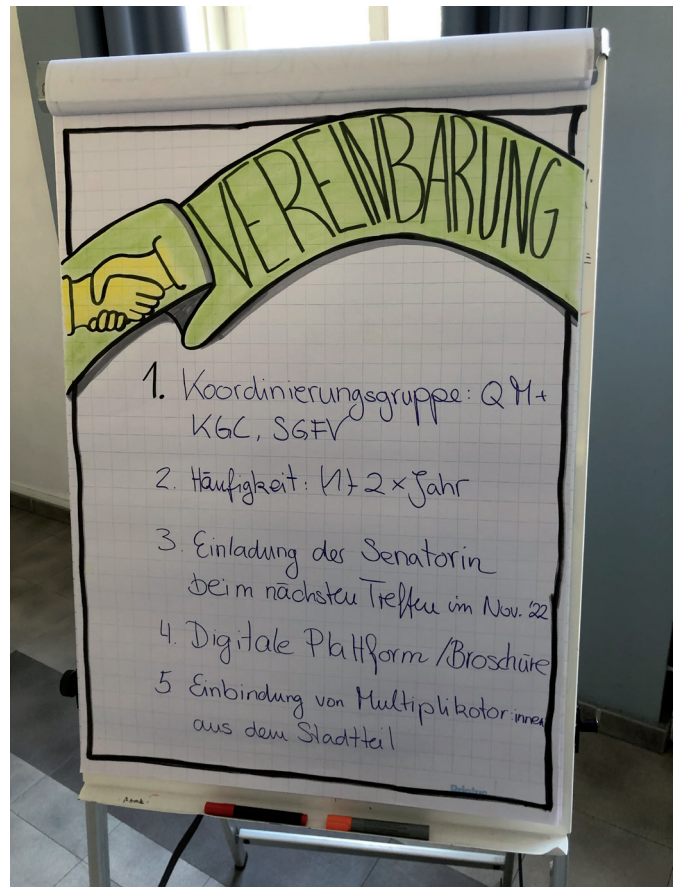 VEREINBARUNG
1. Koordinierungsgruppe: QM+
KGC, SGFV
2. Häufigkeit: (1) 2 x Jahr
3. Einladung der Senatorin
beim nächsten Treffen im Nov. '22
4. Digitale Plattform /Broschüre
5 Einbindung von Multiplikator:innen
aus dem Stadtteil